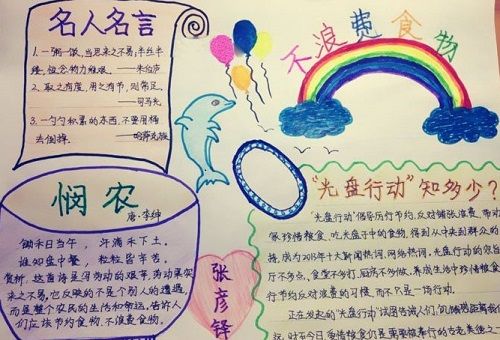 名人名言
1.一粥一饭,当思来之不易;半丝半
缕,恒念物力维艰。——朱伯庐
2.取之有度,用之有节,则常足。
——司马光
3.一勺勺积累的东西,不要用桶
去倒掉。——哈萨克族
不浪费食物
悯农
唐·李绅
锄禾日当午,汗滴禾下土。
谁知盘中餐,粒粒皆辛苦。
赏析:这首诗是写劳动的艰苦,劳动果实
来之不易,它反映的不是个别人的遭遇,
而是整个农民的生活和命运。告诉人
们应该节约食物,不浪费食物。
张彦铎
“光盘行动”知多少?
“光盘行动”倡导厉行节约,反对铺张浪费,带动
家珍惜粮食、吃光盘子中的食物,得到从中央到群众的
持,成为2013年十大新闻热词、网络热词,光盘行动的宗旨
厅不多点、食堂不多打、厨房不多做。养成生活中珍惜粮食
行节约反对浪费的习惯,而不只是一场行动。
正在发起的“光盘行动”试图告诫人们:饥饿距离我们